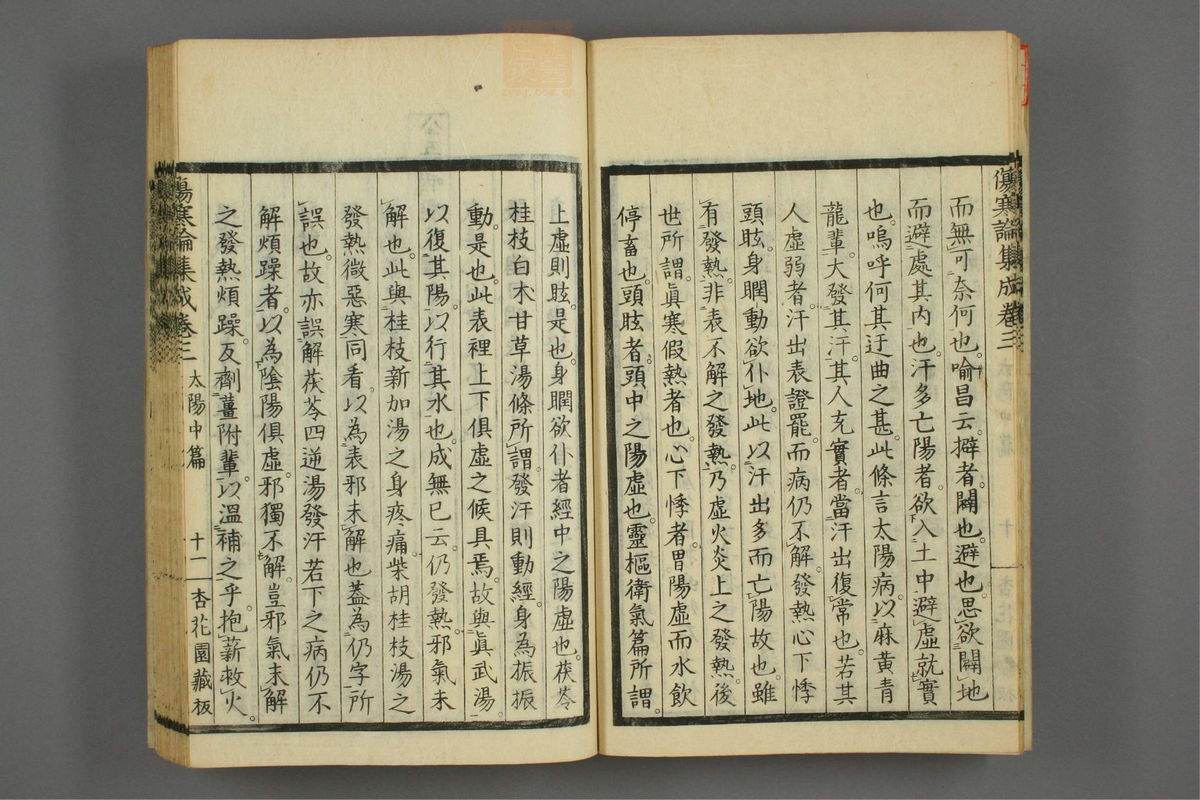 傷寒論集成卷三
而無可奈何也。喻昌云。擗者。闢也。避也。思欲闢地
而避處其内也。汗多亡陽者。欲入土中避虛就實
也。嗚呼何其迂曲之甚。此條言太陽病。以麻黃青
龍輩。大發其汗。其人充實者。當汗出復常也。若其
人虛弱者。汗出表證罷。而病仍不解。發熱心下悸
頭眩身瞤動欲仆地。此以汗出多而亡陽故也。雖
有發熱。非表不解之發熱。乃虛火炎上之發熱。後
世所謂眞寒假熱者也。心下悸者。胃陽虛而水飲
停畜也。頭眩者。頭中之陽虛也。靈樞衛氣篇所謂。
上虛則眩。是也。身瞤欲仆者經中之陽虛也。茯苓
桂枝白朮甘草湯條所謂發汗則動經。身為振振
動。是也。此表裡上下俱虛之候具焉。故與眞武湯。
以復其陽。以行其水也。成無已云。仍發熱。邪氣未
解也。此與桂枝新加湯之身疼痛。柴胡桂枝湯之
發熱微惡寒同看。以為表邪未解也蓋為仍字所
誤也。故亦誤解茯苓四逆湯發汗若下之病仍不
解煩躁者。以為陰陽俱虛。邪獨不解。豈邪氣未解
之發熱煩躁。反劑薑附輩。以溫補之乎。抱薪救火。
傷寒論集成卷三
太陽中篇
十一
杏花園藏板